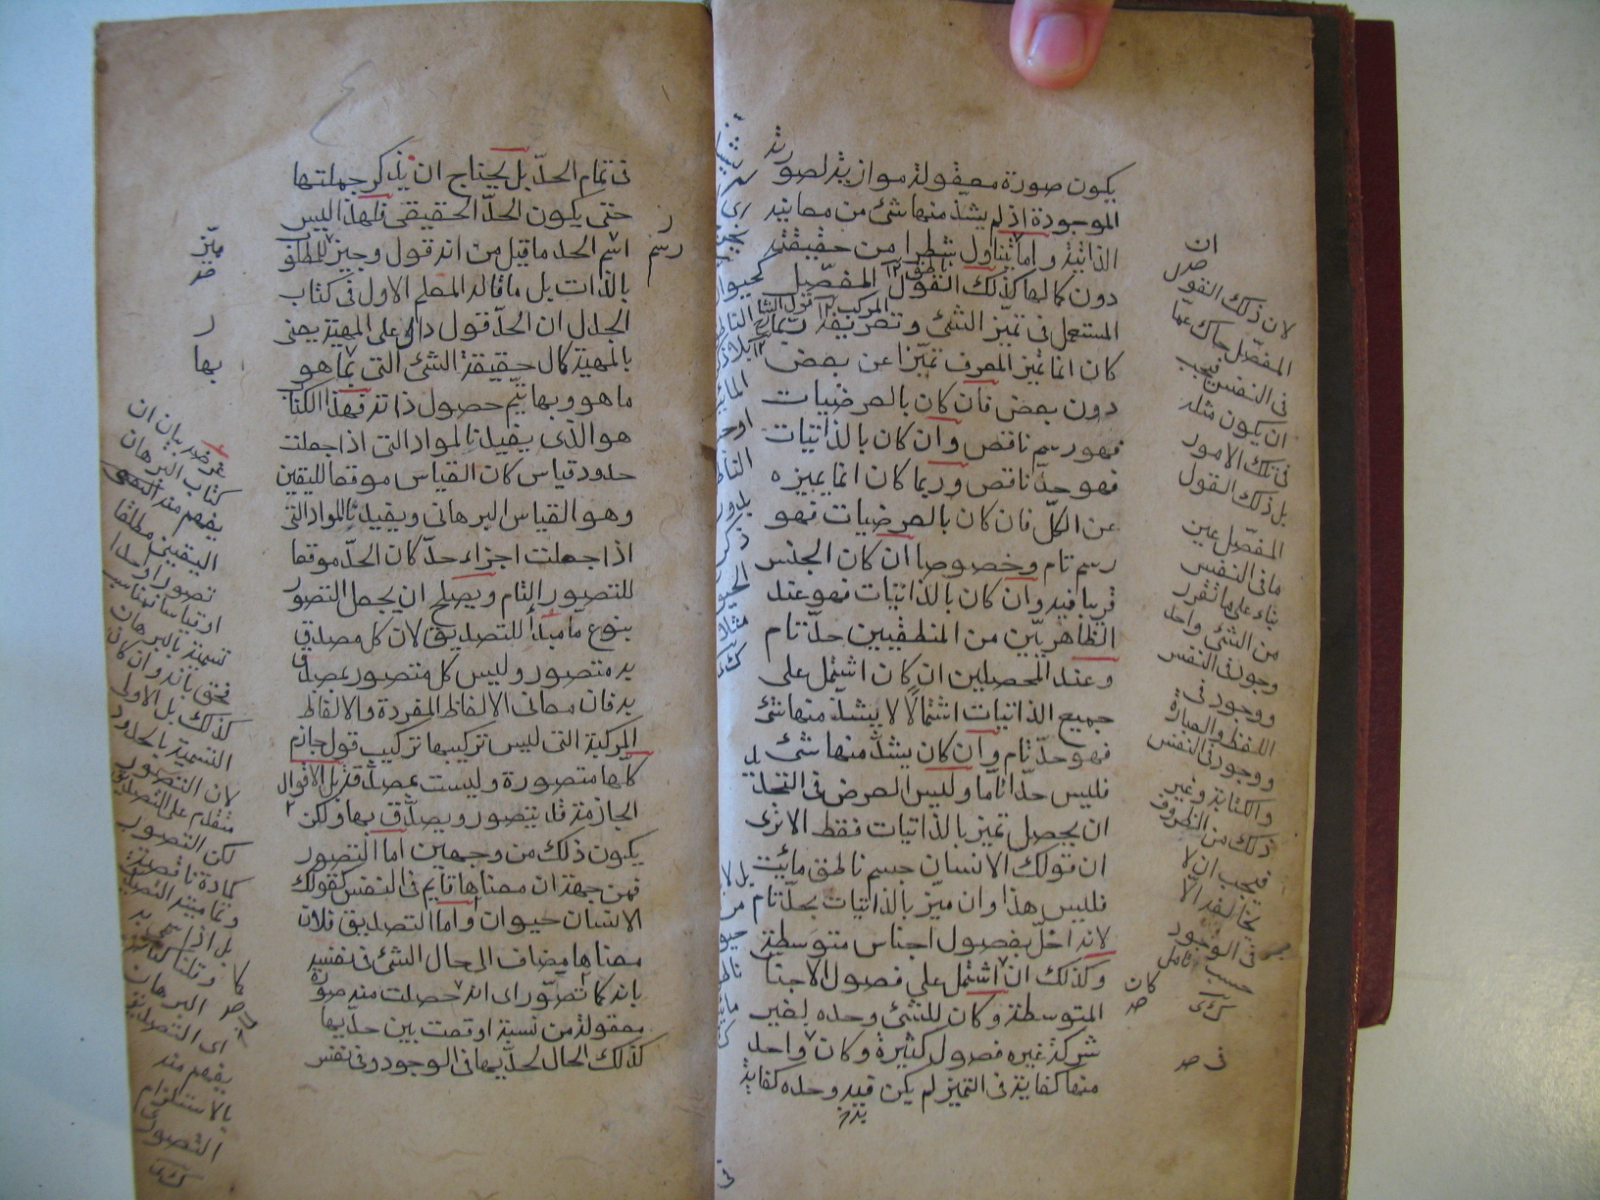 يكون صورة معقولة موازية لصورته
الموجودة اذ لم يشذ منها شئ من معانيه
الذاتية واما يتناول شطرا من حقيقته
دون كمالها كذلك القول المفصل
المستعمل فى تميز الشئ وتعريفه ربما
كان انما تميز المعرف تميزا عن بعض
دون بعض فان كان بالعرضيات
فهو رسم ناقص وان كان بالذاتيات
فهو حد ناقص وربما كان انما يميزه
عن الكل فان كان بالعرضيات فهو
رسم تام وخصوصا ان كان الجنس
قريبا فيه وان كان بالذاتيات فهو عند
الظاهريين من المنطقيين حد تام
وعند المحصلين ان كان اشتمل على
جميع الذاتيات اشتمالا لا يشذ منها شئ
فهو حد تام وان كان يشذ منها شئ
فليس حدا تاما وليس الغرض فى التحديد
ان يحصل تميز بالذاتيات فقط الا ترى
ان قولك الانسان جسم ناطق مائت
فليس هذا وان ميز بالذاتيات بحد تام
لانه اخل بفصول اجناس متوسطة
وكذلك ان اشتمل على فصول الاجناس
المتوسطة وكان للشئ وحده لغير
شركة غيره فصول كثيرة وكان واحد
منها كفاية فى التميز لم يكن فيه وحده كفاية
ان
لان ذلك القول
المفصل حاك عما
فى النفس فيجب
ان يكون مثله
فى تلك الامور
بل ذلك القول
المفصل عين
ما فى النفس
بناء على ما تقرر
من الشئ واحد
وجود فى النفس
ووجود فى
اللفظ والعبارة
ووجود فى النفس
والكتابة وغير
ذلك من الظروف
فيجب ان لا
يتخالف الا
فى الوجود
حسب تامل
كان
فى تمام الحد بل يحتاج ان يذكر جملتها
حتى يكون الحد الحقيقى فلهذا ليس
اسم الحد ما قيل من انه قول وجيز للمطلق
بالذات بل ما قاله المعلم الاول فى كتاب
الجدل ان الحد قول دال على المهية يعنى
بالمهية كمال حقيقة الشئ التى بها هو
ما هو وبها يتم حصول ذاته فهذا الكتاب
هو الذى يفيدنا المواد التى اذا جعلت
حدود قياس كان القياس موقعا لليقين
وهو القياس البرهانى ويفيدنا المواد التى
اذا جعلت اجزاء حد كان الحد موقعا
للتصور التام ويصلح ان يجعل التصور
بنوع ما مبدأ للتصديق لان كل مصدق
به متصور وليس كل متصور بمصدق
به فان معانى الالفاظ المفردة والالفاظ
المركبة التى ليس تركيبها تركيب قول جازم
كلها متصورة وليست بمصدقة بل الاقوال
الجازمة قد يتصور ويصدق بها ولكن
يكون ذلك من وجهين اما التصور
فمن جهة ان معناها قايم فى النفس كقولك
الانسان حيوان واما التصديق فلان
معناها مضاف الى حال الشئ فى نفسه
بانه كما تصور اى انه حصلت منه صورة
معقولة من نسبة اوقعت بين حديها
كذلك الحال لحديها فى الوجود وفى نفس
رسم
ميز
بها
غرضه بيان ان
كتاب البرهان
يفهم منه
اليقينى مطلقا
تصورا وحدا
تسمية بالبرهان
كذلك بل الاولى
التسمية بالحدود
لان التصور
متقدم على التصديق
لكن التصور
كمادة ناقصة
البرهان
اى التصديق
يفهم منه
بالاستلزام
التصور